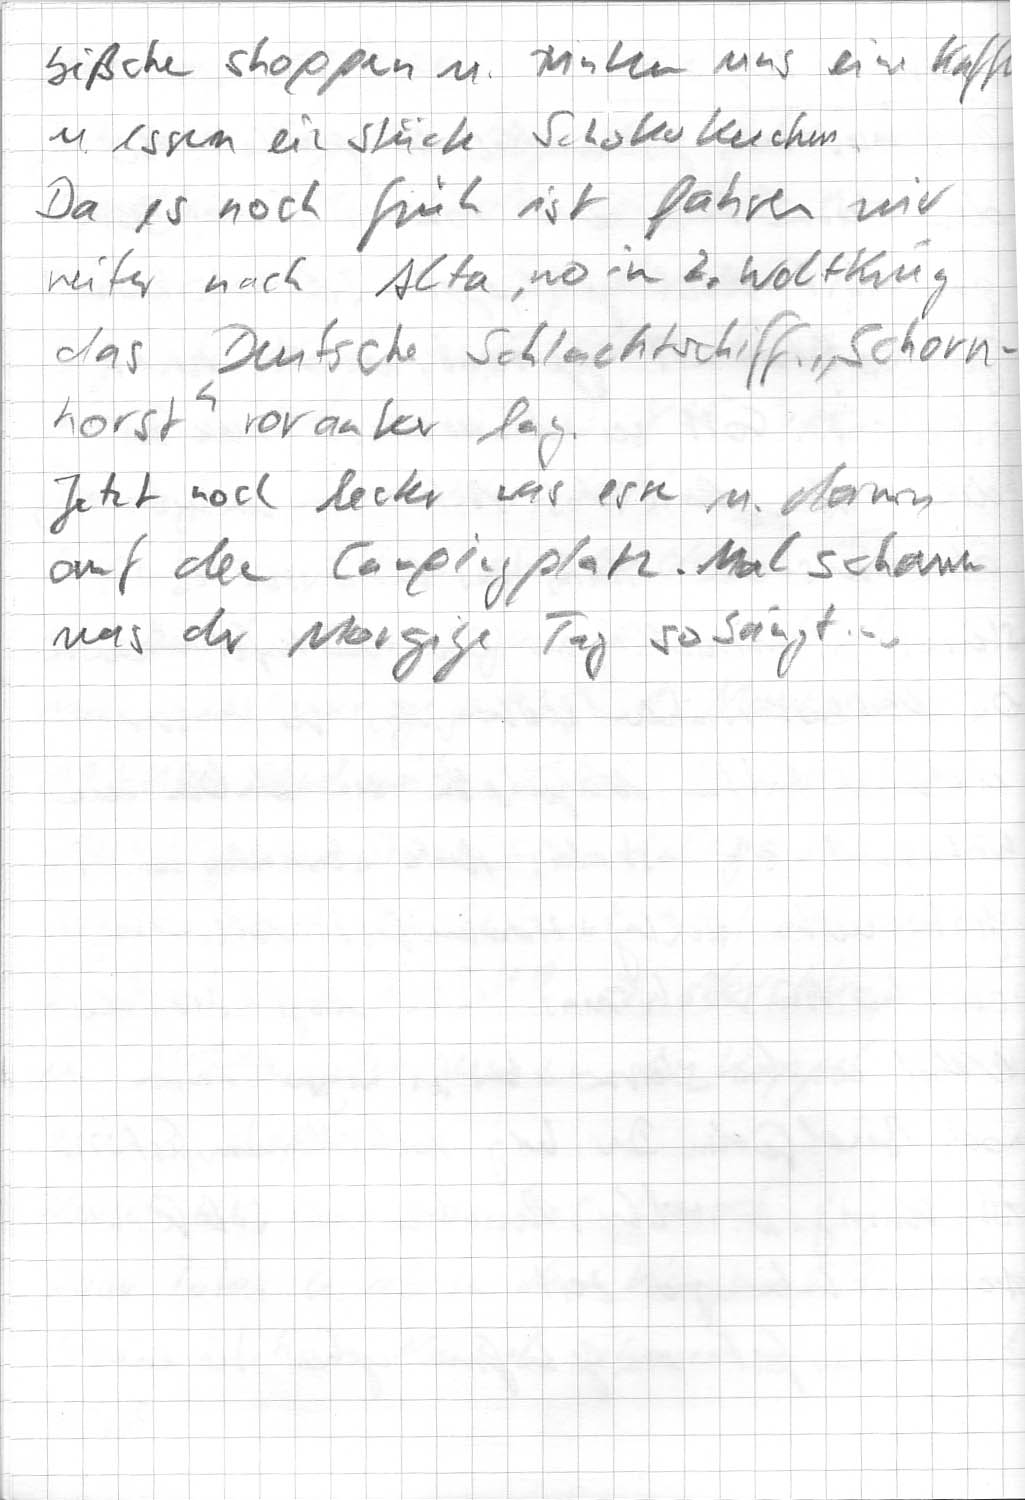 bißche shoppen u. trinken uns eine Kaffe
u. essen ein Stück Schokokuchen.
Da es noch früh ist fahren wir
weiter nach Alta, wo in 2. Weltkrieg
das Deutsche Schlachtschiff „Scharn-
horst“ vor anker lag.
Jetzt noch lecker was essen u. dann
auf den Campingplatz. Mal schauen
was der Morgige Tag so bringt...